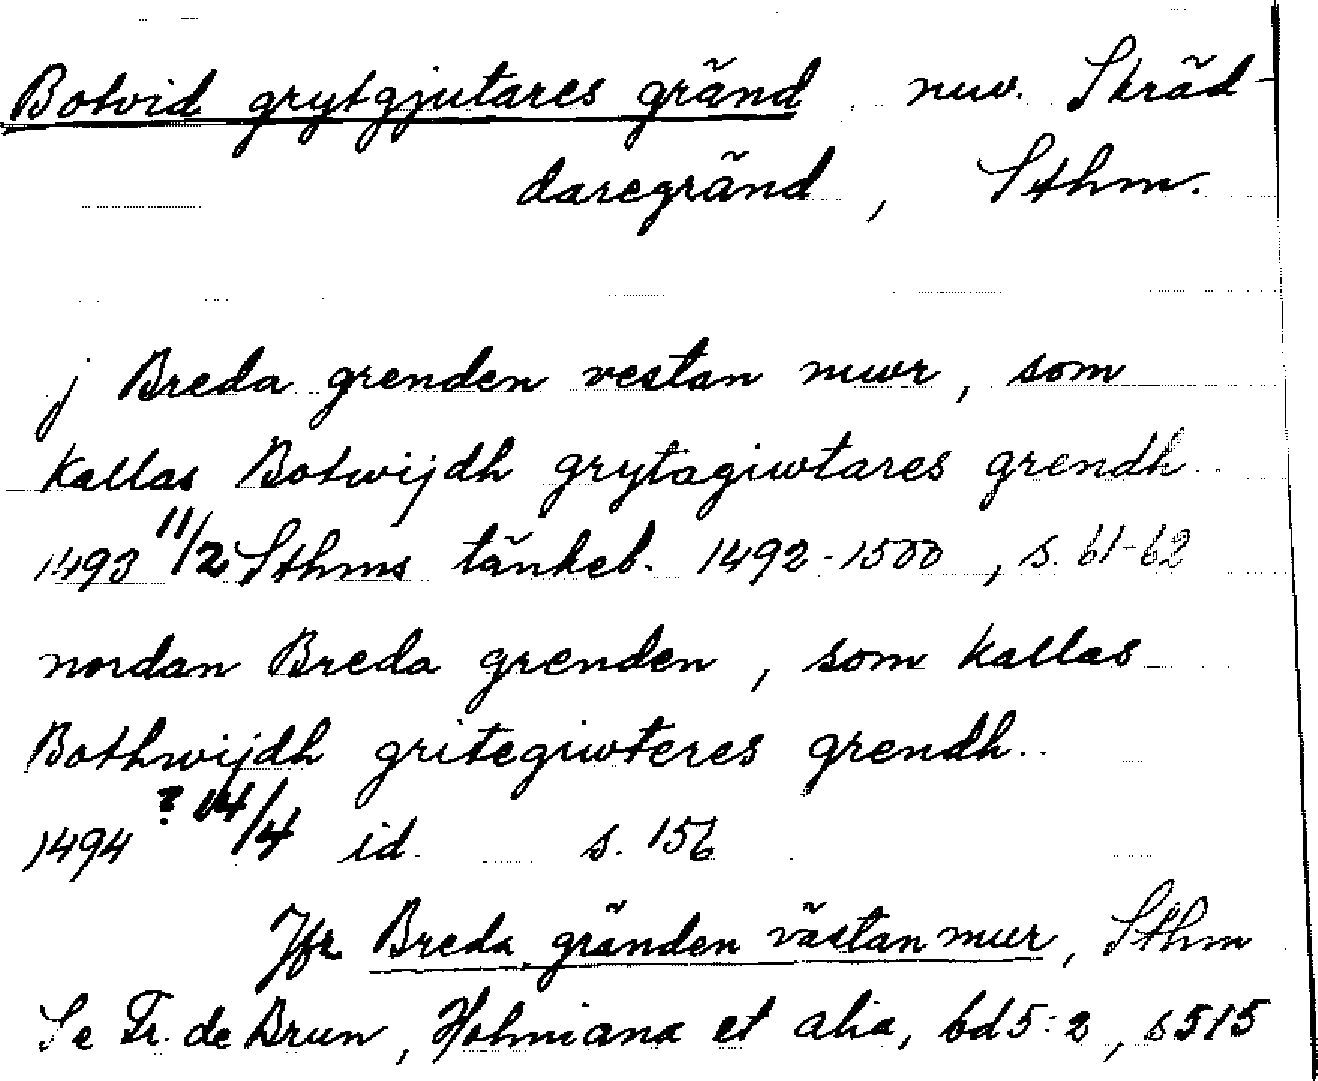 Botvid grytgjutares gränd nuv. Skräd-
daregränd, Sthm.
j Breda grenden vestan mwr, som
kallas Botwijdh grytagiwtares grendh
1493 11/2 Sthms tänkeb. 1492-1500, s. 61-62
nordan Breda grenden, som kallas
Bothwijdh gritegiwteres grendh
1494 ? 14/4 id. s. 156
Jfr Breda gränden västan mur, Sthm
Se Fr. de Brun, Holmiana et alia, bd 5:2, s 515